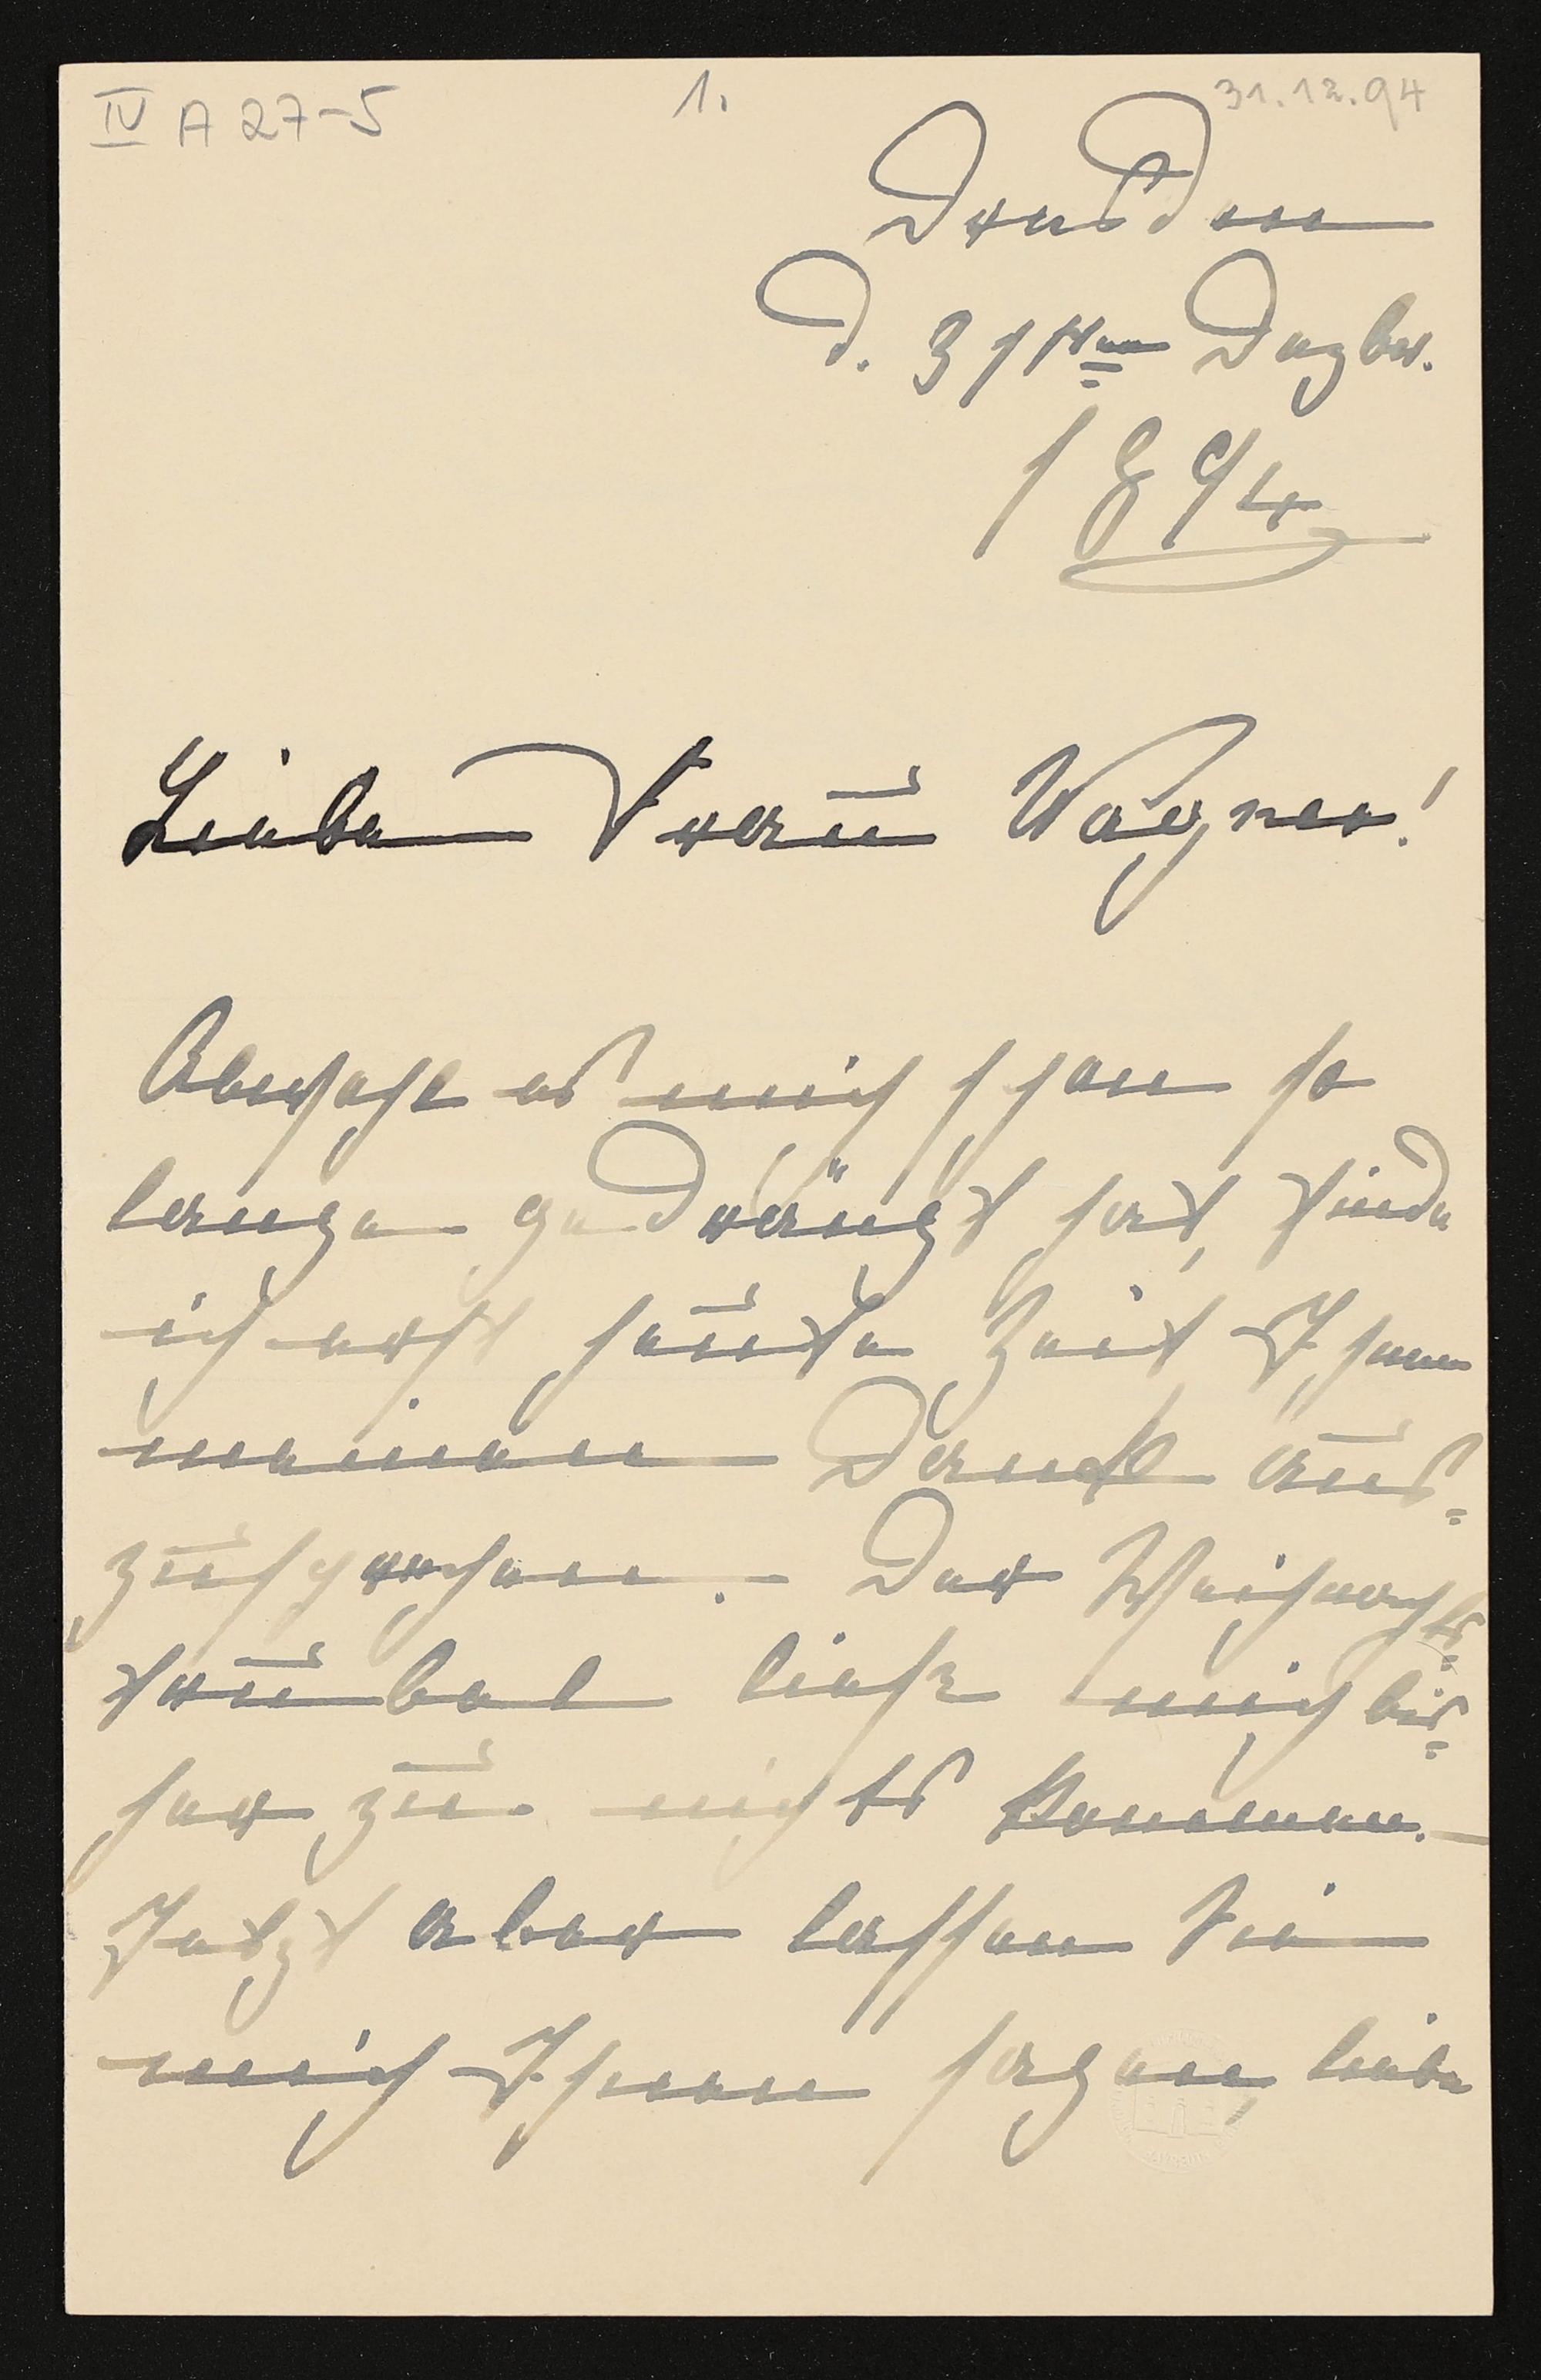 IV A 27-5 1. 31.12.94
Dresden
d. 31ten Dezbr.
1894
Liebe Frau Wagner!
Obwohl es mich schon so
lange gedrängt hat, finde
ich erst heute Zeit Ihnen
meinen Dank aus=
zusprechen. – Der Weihnachts=
trubel ließ mich bis=
her zu nichts kommen. –
Jetzt aber lassen Sie
mich Ihnen sagen, liebe